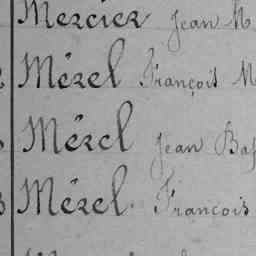 Mercier Jean M
Mérel François M
Mérel Jean Bap
Mérel François